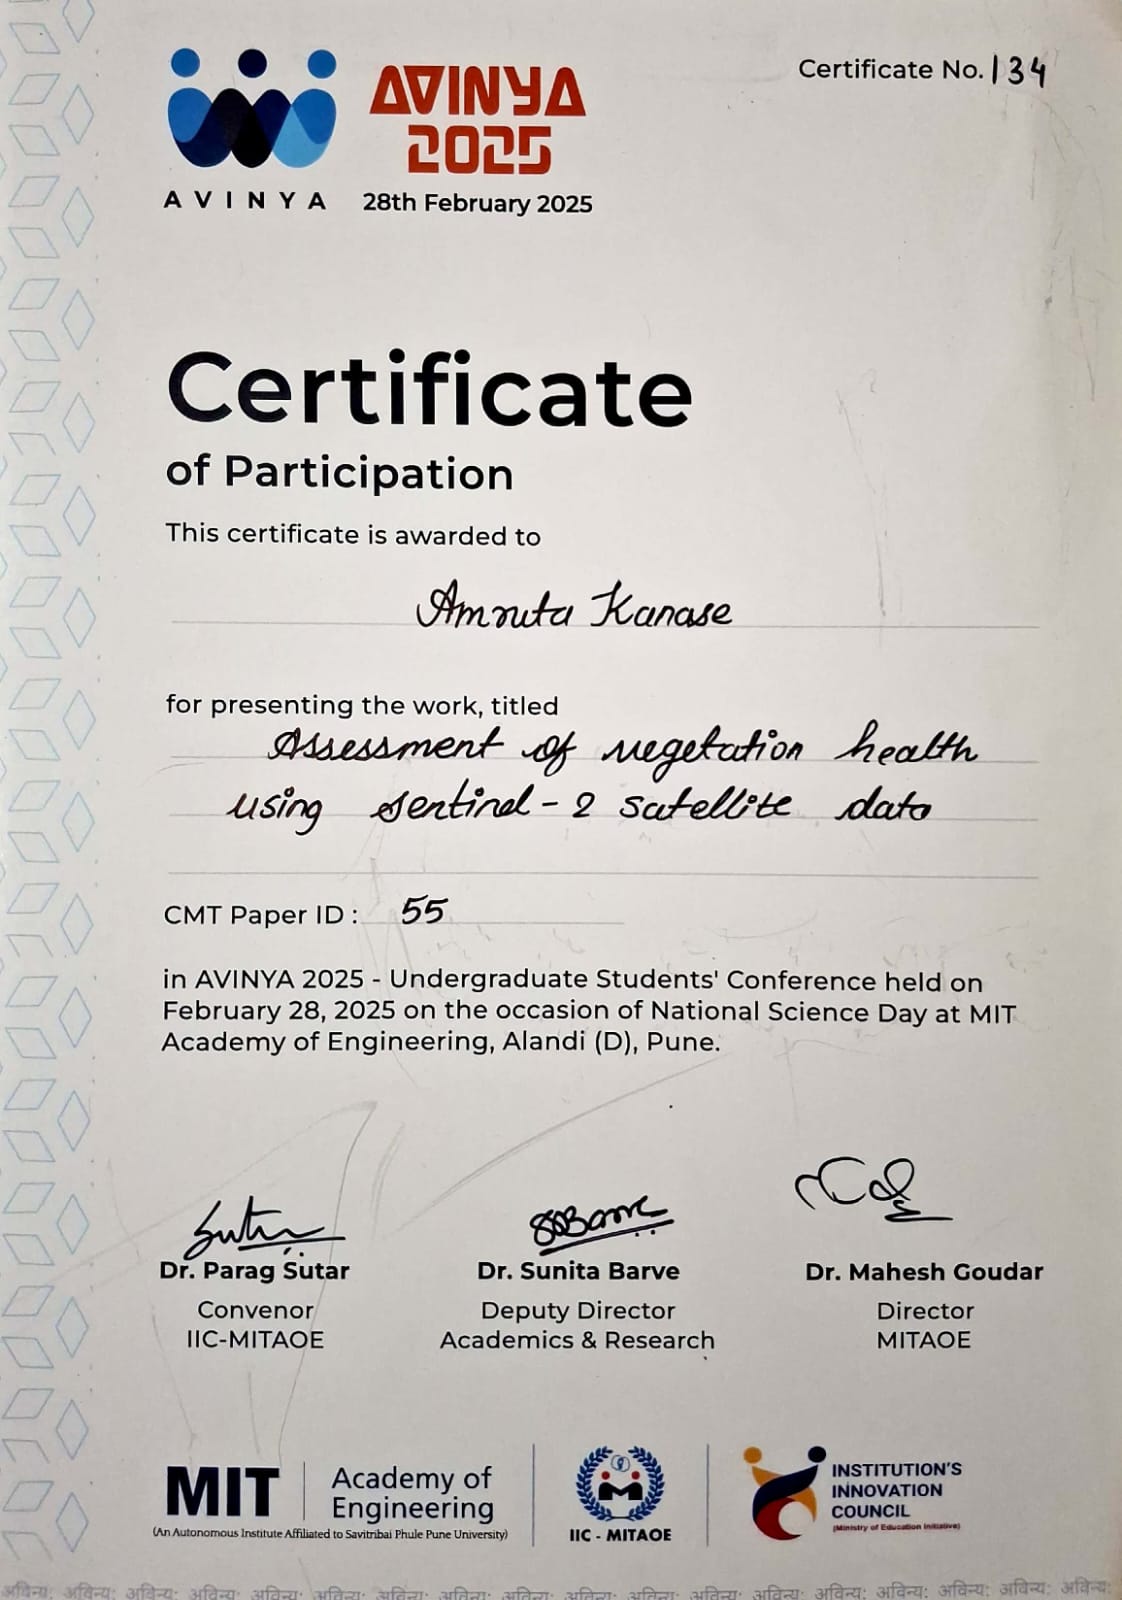 Certificate No. 134
AVINYA
2025
AVINYA
28th February 2025
Certificate
of Participation
This certificate is awarded to
Amruta Kanase
for presenting the work, titled
Assessment of vegetation health
using sentinel-2 satellite data
CMT Paper ID : 55
in AVINYA 2025 - Undergraduate Students' Conference held on
February 28, 2025 on the occasion of National Science Day at MIT
Academy of Engineering, Alandi (D), Pune.
Dr. Parag Sutar
Convenor
IIC-MITAOE
Dr. Sunita Barve
Deputy Director
Academics & Research
Dr. Mahesh Goudar
Director
MITAOE
MIT
Academy of
Engineering
(An Autonomous Institute Affiliated to Savitribai Phule Pune University)
IIC - MITAOE
INSTITUTION'S
INNOVATION
COUNCIL
(Ministry of Education Initiative)
अविन्य: अविन्य: अविन्य: अविन्य: अविन्य: अविन्य: अविन्य: अविन्य: अविन्य: अविन्य: अविन्य: अविन्य: अविन्य: अविन्य: अविन्य: अविन्य: अविन्य: अविन्य: